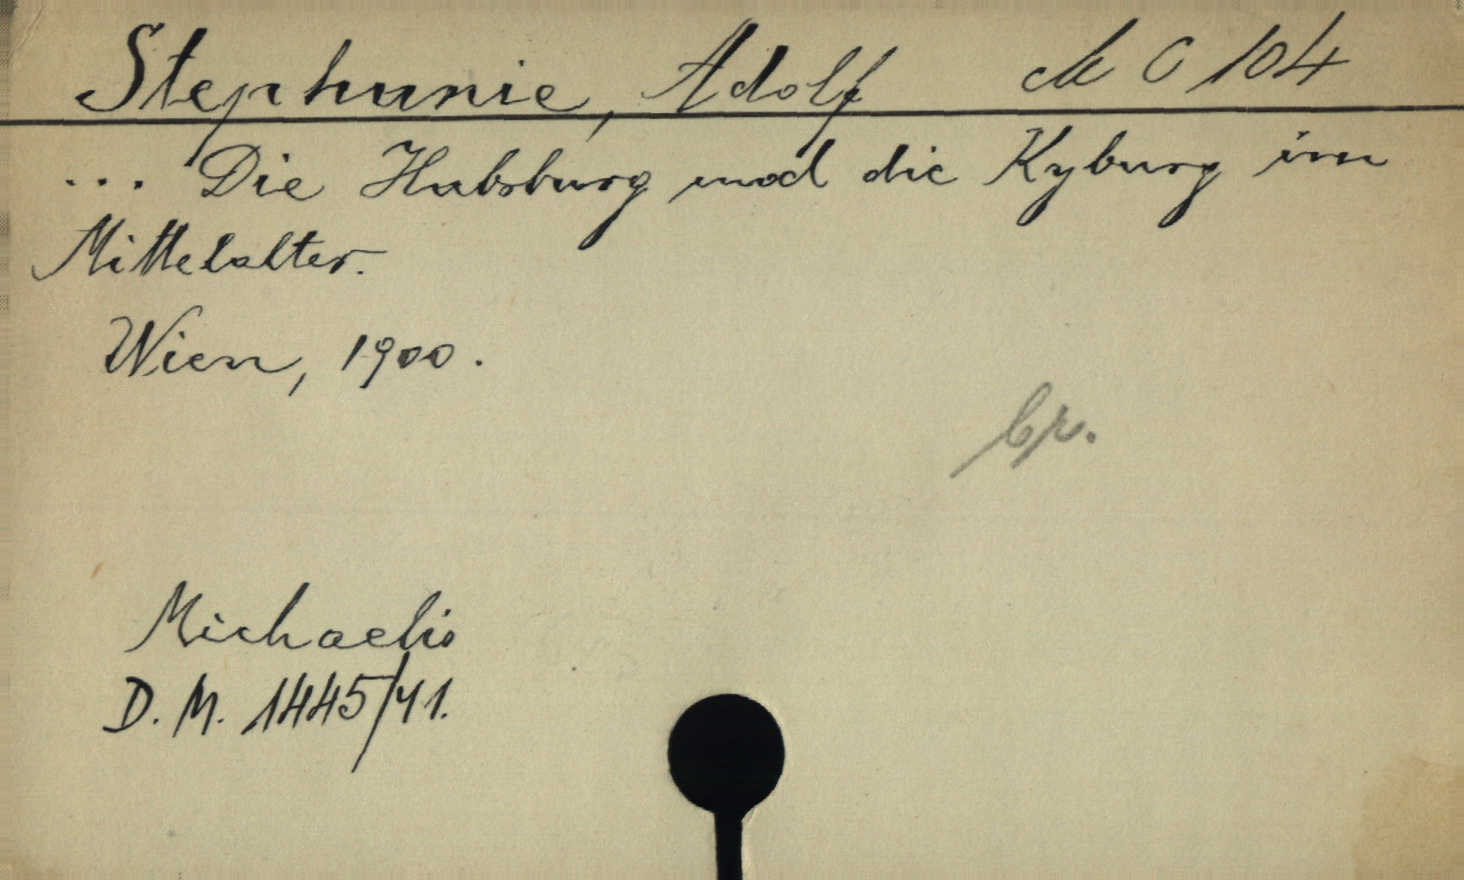 Stephanie, Adolf M C 104
... Die Habsburg und die Kyburg im
Mittelalter.
Wien, 1900.
Michaelis
D. M. 1445/41.